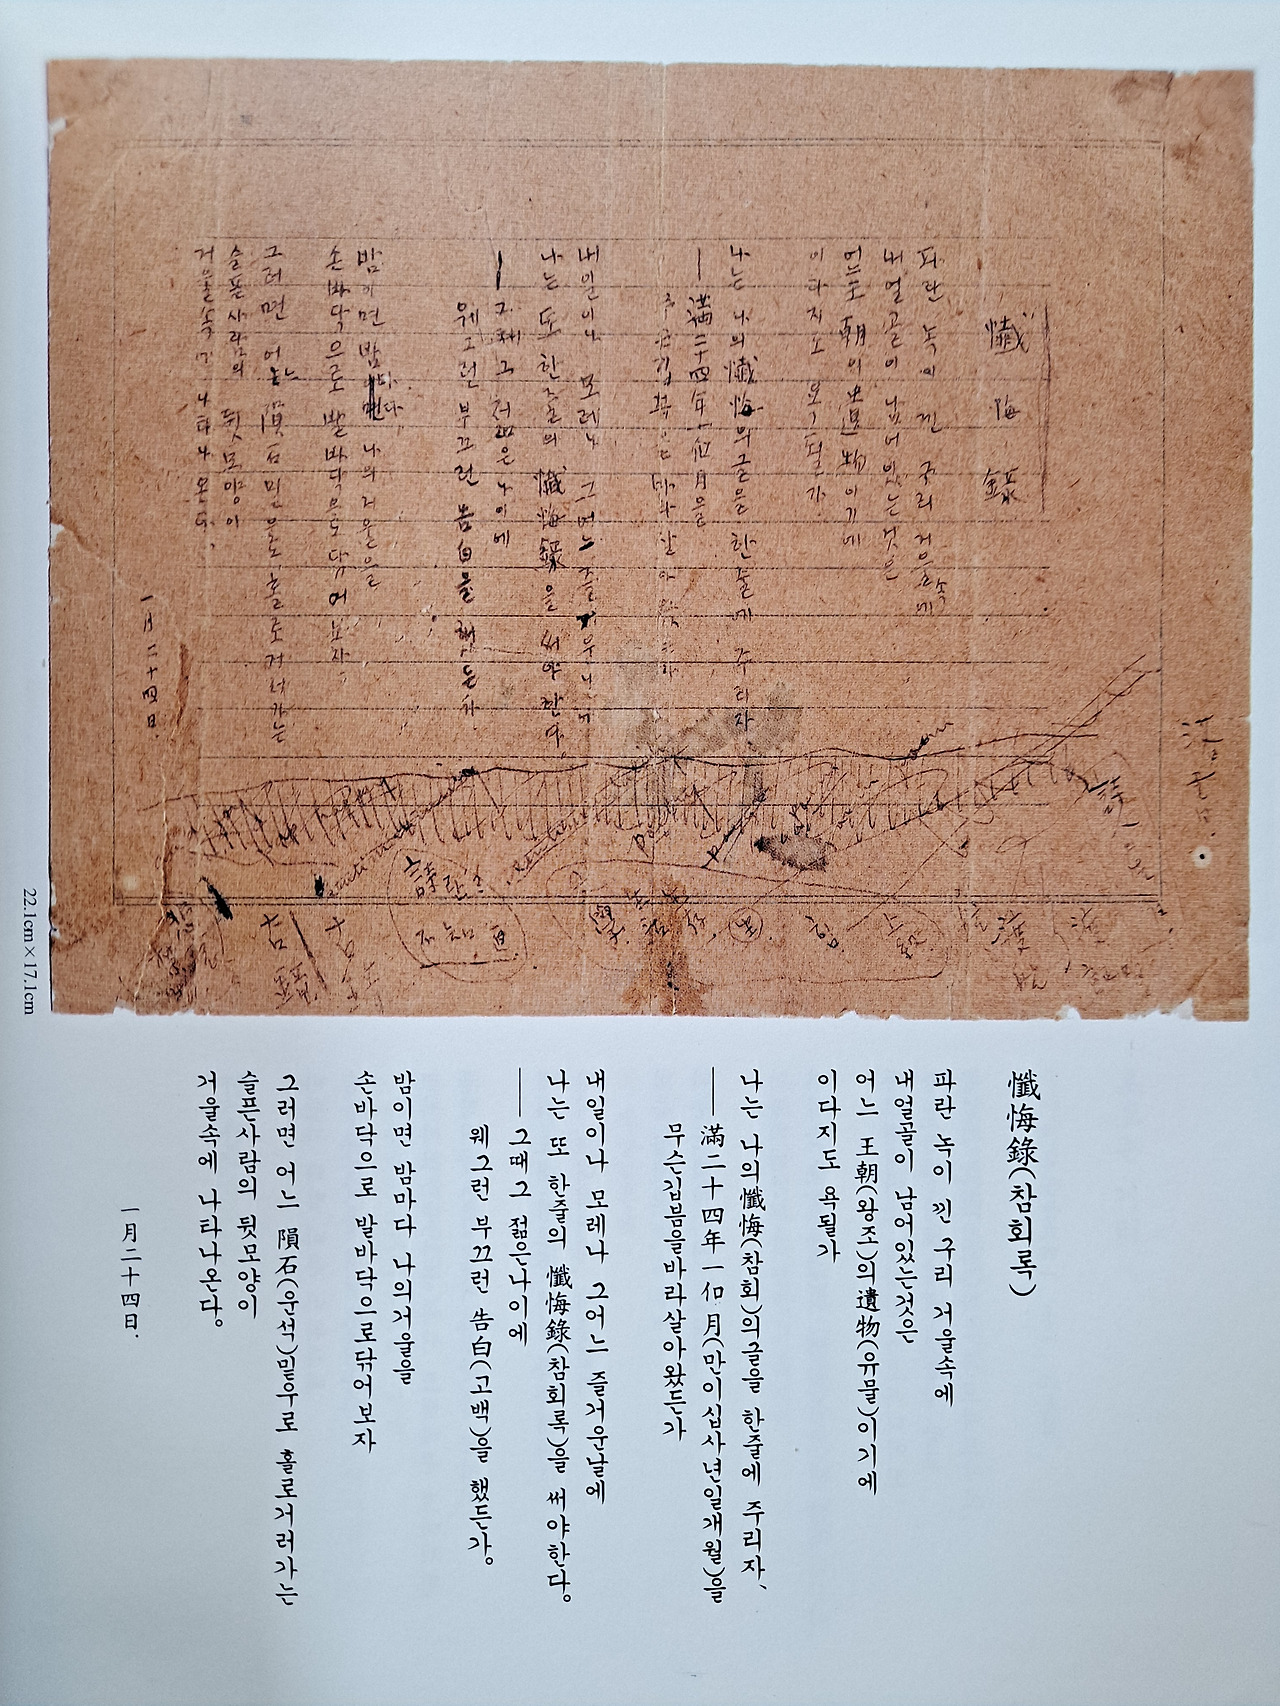 懺悔錄
파란 녹이 낀 구리 거울속에
내얼골이 남어있는것은
어느 王朝의遺物이기에
이다지도 욕될가
나는 나의懺悔의글을 한줄에 주리자
— 滿二十四年一個月을
내일이나 모레나 그어느 즐거운날에
나는 또 한줄의 懺悔錄을 써야한다。
— 그때그 젊은나이에
웨그런 부끄런 告白을 했든가
밤이면 밤마다 나의거울을
손바닥으로 발바닥으로 닦어보자
그러면 어느 隕石밑으로 홀로거러가는
슬픈사람의 뒷모양이
거울속에 나타나온다。
一月二十四日.
詩란?
22.1cm×17.1cm
懺悔錄(참회록)
파란 녹이 낀 구리 거울속에
내얼골이 남어있는것은
어느 王朝(왕조)의遺物(유물)이기에
이다지도 욕될가
나는 나의懺悔(참회)의글을 한줄에 주리자、
— 滿二十四年一個月(만이십사년일개월)을
무슨깁븜을바라살아왔든가
내일이나 모레나 그어느 즐거운날에
나는 또 한줄의 懺悔錄(참회록)을 써야한다。
— 그때그 젊은나이에
웨그런 부끄런 告白(고백)을 했든가。
밤이면 밤마다 나의거울을
손바닥으로 발바닥으로닦어보자
그러면 어느 隕石(운석)밑우로 홀로거러가는
슬픈사람의 뒷모양이
거울속에 나타나온다。
一月二十四日.